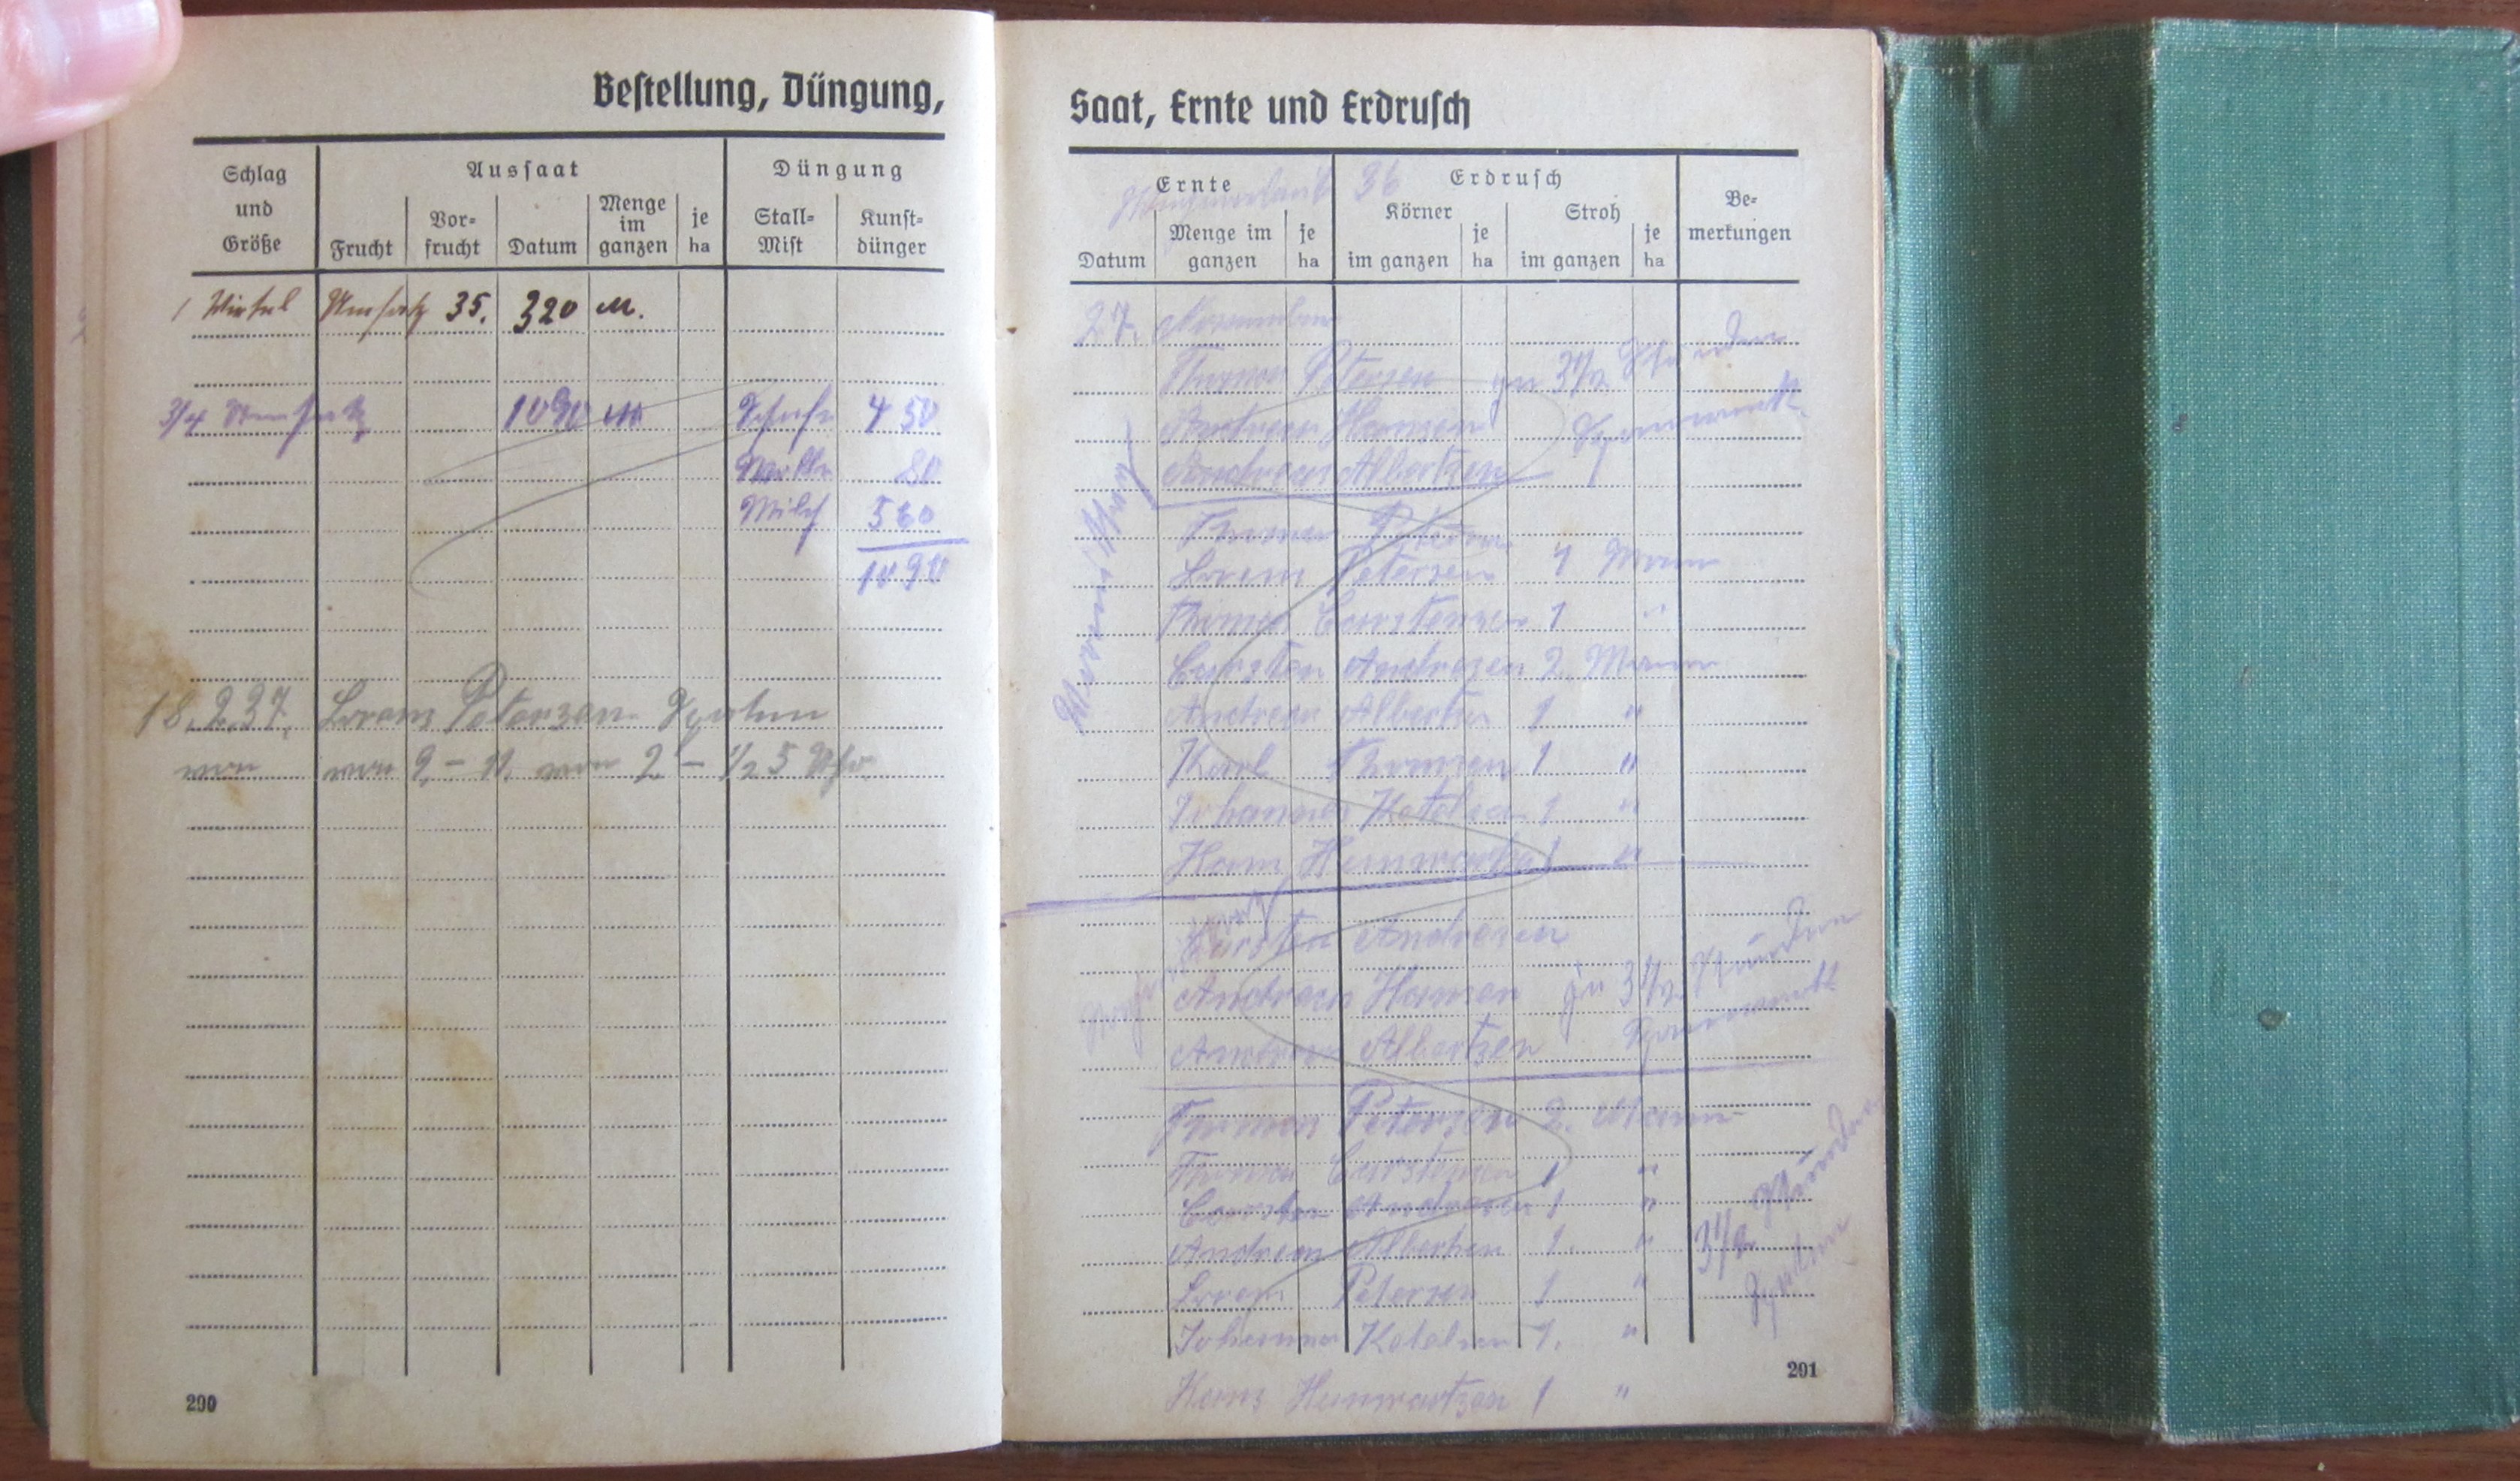 Bestellung, Düngung,
Schlag und Größe
Aussaat
Düngung
Frucht
Vor-frucht
Datum
Menge im ganzen
je ha
Stall-Mist
Kunst-dünger
1 Virtel Umsatz 35. 320 M.
3/4 Umsatz 1090 M Schafe 450
Wolle 80
Milch 560
1090
18.2.37. Lorenz Petersen
von von 9 – 11 von 2 – 1/2 5 Uhr
290
Saat, Ernte und Erdrusch
36
Ernte
Erdrusch
Be-merkungen
Körner
Stroh
Datum
Menge im ganzen
je ha
im ganzen
je ha
im ganzen
je ha
27. November
Thomas Petersen zu 3 1/2 Stunden
Andreas Hansen
Andreas Albertsen
Thomas Petersen
Lorenz Petersen 4 Mann
Thomas Carstensen 1 "
Carsten Andresen 2 Mann
Andreas Albertsen 1 "
Karl Thomsen 1 "
Johannes Ketelsen 1 "
Hans 1 "
Karsten Andresen
Andreas Hansen zu 3 1/2 Stunden
Andreas Albertsen
Thomas Petersen 2. Mann
Thomas Carstensen 1 "
Carsten Andresen 1 "
Andreas Albertsen 1. "
3 1/2 Stunden
Lorenz Petersen 1 "
Johannes Ketelsen 1. "
291
Hans 1 "